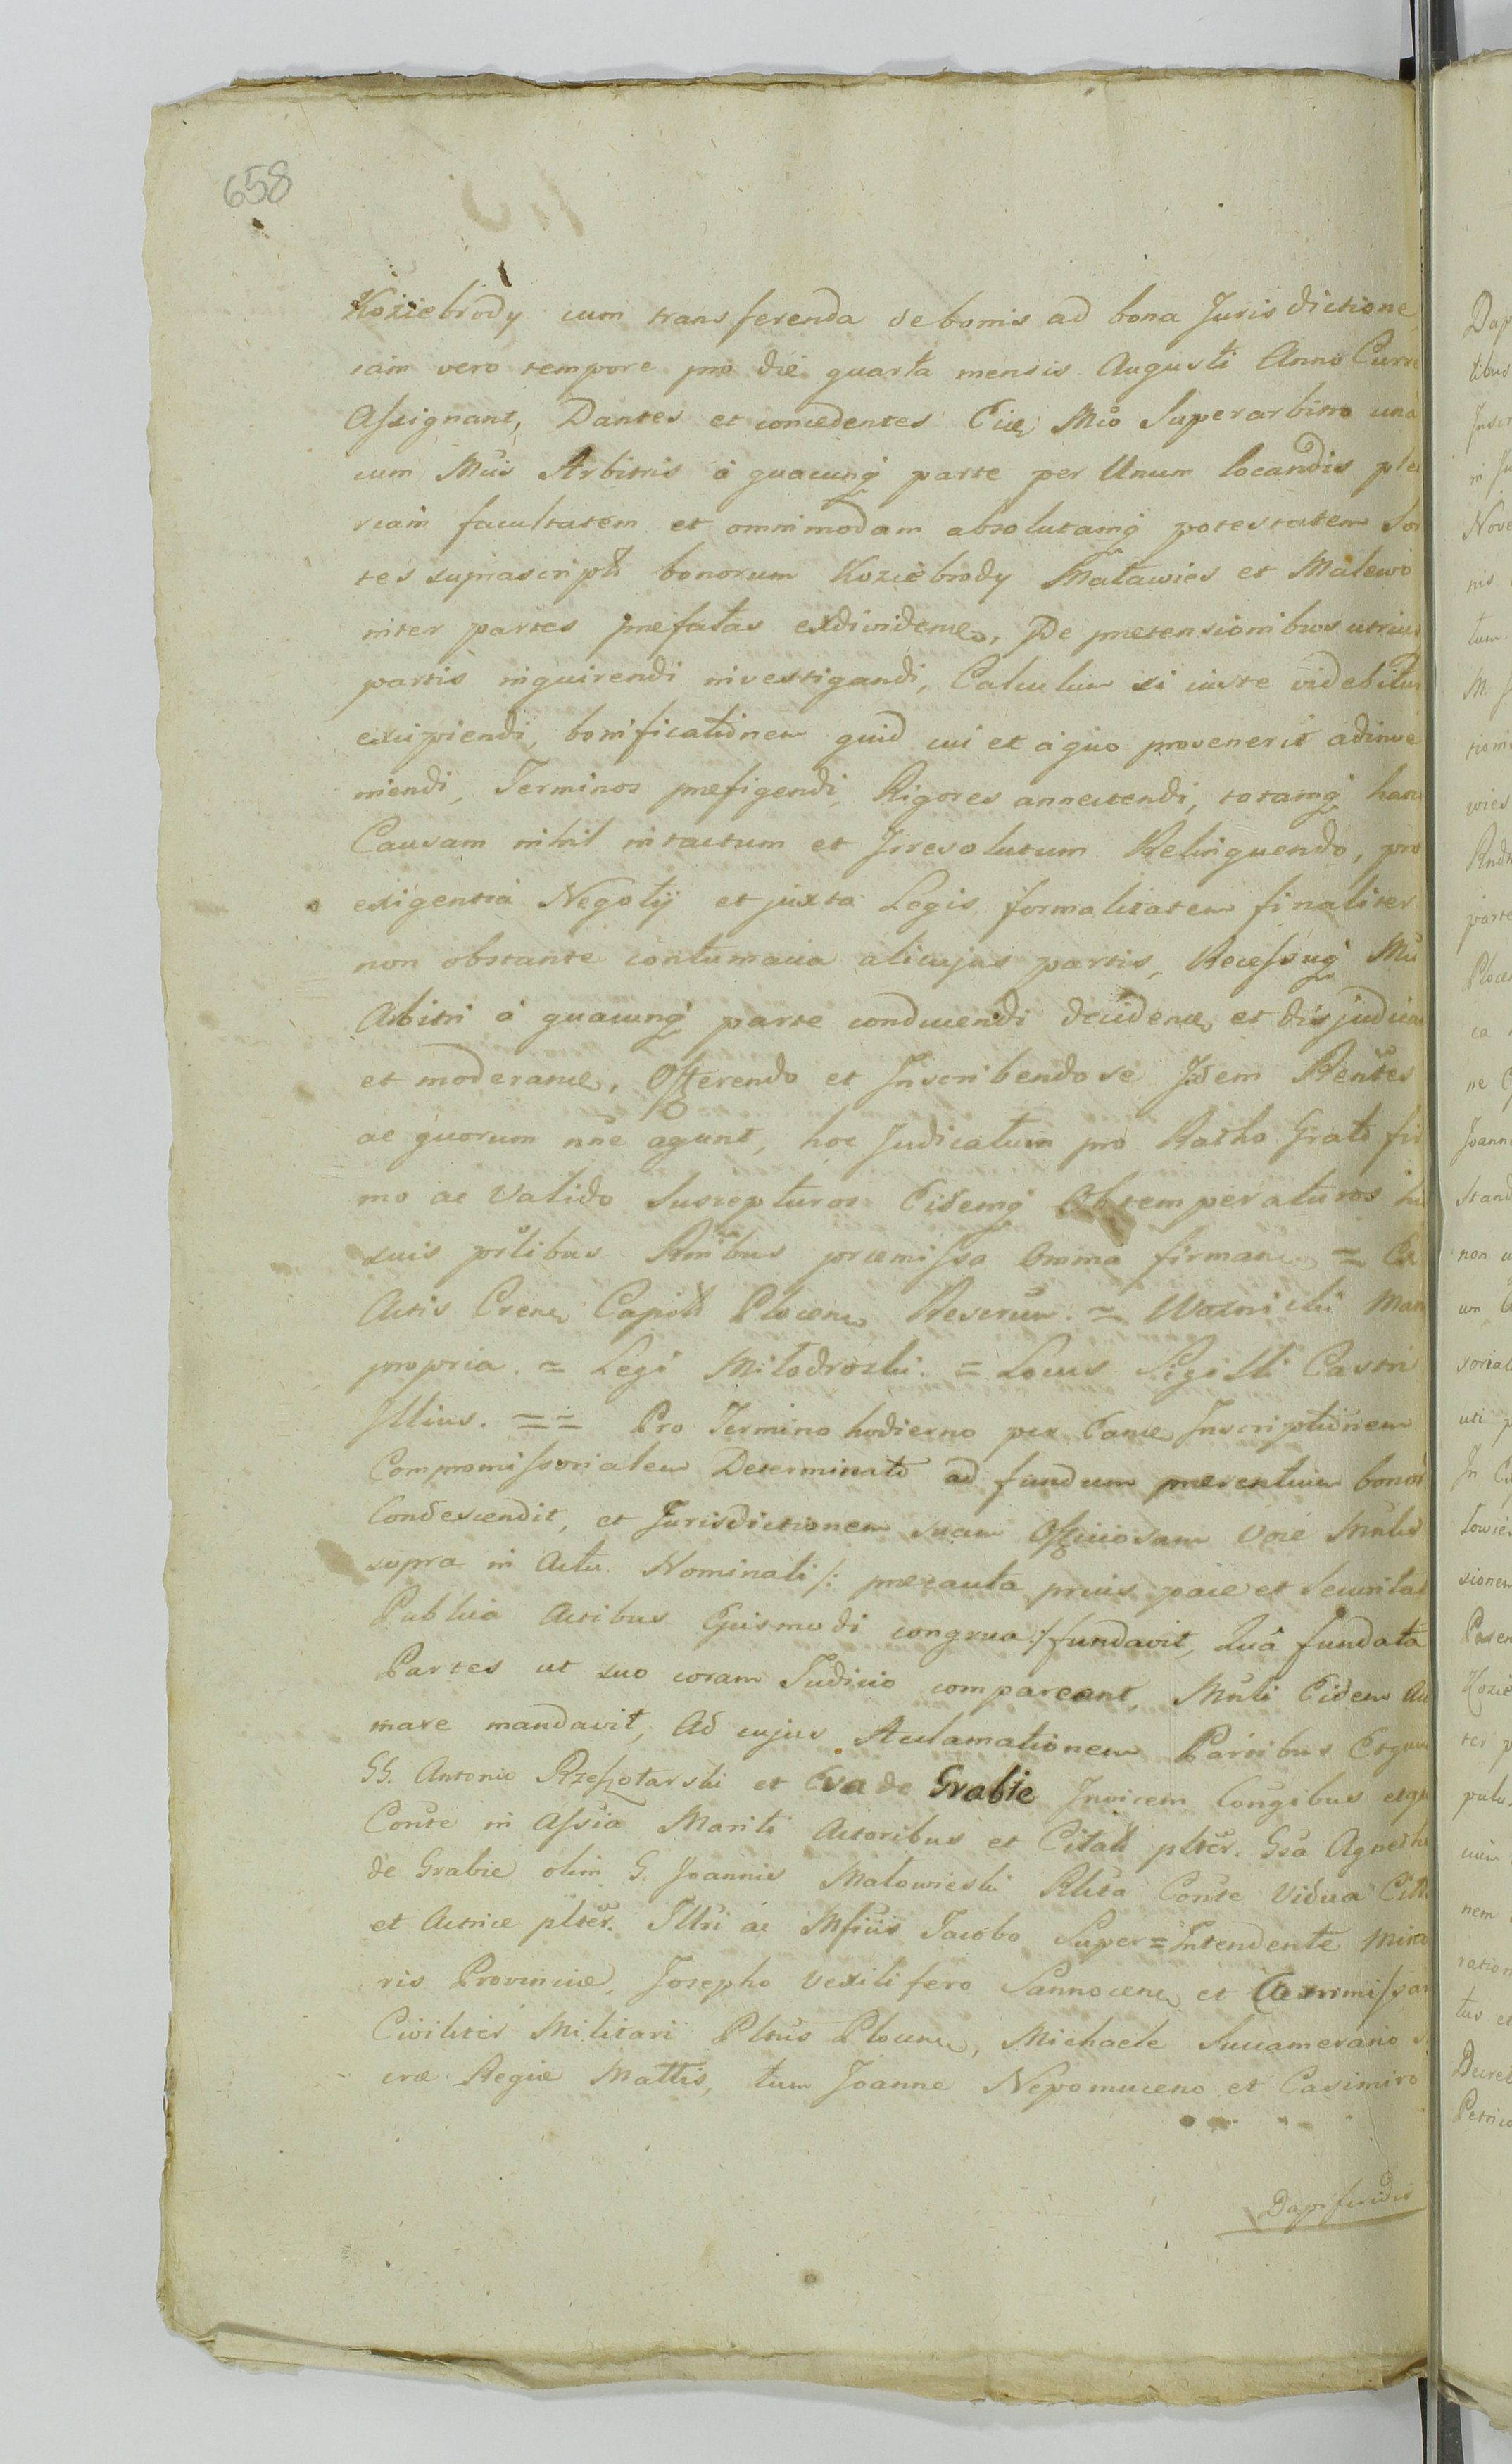 658
Koziebrody cum transferenda de bonis ad bona Jurisdictione
iam vero tempore pro die quarta mensis Augusti Anno Curre
Assignant, Dantes et concedentes Mco Superarbitro una
cum Mcis Arbitris à quacunq parte per Unum locandis ple
riam facultatem et omnimodam absolutamq potestatem Sor
tes suprascriptt bonorum Koziebrody Maławies et Malewo
inter partes præfatas exdividen, De prætensionibus utrius
partis inquirendi investigandi, Calculum si iuste videbitur
excipiendi, bonificationem quid cui et à quo provenerit adinve
niendi, Terminos præfigendi, Rigores annectendi, totamq hanc
Causam nihil intactum et Irresolutum Relinquendo, pro
exigentia Negotij et juxta Legis formalitatem finaliter
non obstante contumacia alicujus partis, Recessuq Mci
Arbitri à quacunq parte conducendi deciden et disjudican
et moderan, Offerendo et Inscribendo se Jidem Rentes
ac quorum nne agunt, hoc Judicatum pro Ratho Grato fir
mo ac Valido Suscepturos Eidemq Obtemperaturos
suis pntibus Rmbus præmissa omnia firman = Ex
Actis Cren Capitt Plocen Rescrum = Woznicki Man
propria. = Legi Miłodroski. = Locus Sigilli Castri
Illius. = = Pro Termino hodierno per Eam Inscriptionem
Compromissorialem Determinato ad fundum præsentium bonor
Condescendit, et Jurisdictionem suam Officiosam Voce Mnlis
supra in Actu Nominati /: præcauta prius pace et Securitat
Publica Actibus Ejusmodi congrua :/ fundavit, Quâ fundata
Partes ut suo coram Judicio compareant, Mnli Eidem Acc
mare mandavit, Ad cujus Acclamationem Partibus
GG. Antonio Rzeszotarski et Eva de Grabie Invicem Congibus etq
Conte in Assia Mariti Actoribus et Citatt plter. Gsa Agneth
de Grabie olim G. Joannis Małowieski Rlicta Conte Vidua Cit
et Actrice plter. Illri ac Mficis Jacobo Super=Intendente Mino
ris Provinciæ, Josepho Vexilifero Sannocen et Commissar
Civiliter Militari Pltus Plocen, Michaele Succamerario
cræ Regiæ Mattis, tum Joanne Nepomuceno et Casimiro
Dapiferidis